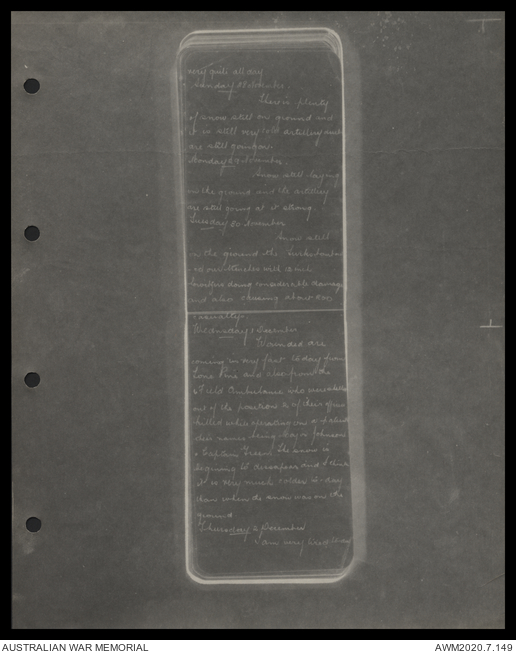 very quite all day
Sunday 28 November.
There is plenty
of snow still on ground and
it is still very cold artillery
are still going on.
Monday 29 November.
Snow still laying
on the ground and the artillery
are still going at it strong.
Tuesday 30 November
Snow still
on the ground the
our trenches with
doing considerable damage
and also causing about
casualtys.
Wednesday 1 December
Wounded are
coming in very fast to day from
Lone Pine and also from the
Field Ambulance who
out of the position 2 of their
killed while operating
their names being Major Johnson
& Captain Green The snow is
beginning to dissapear and I think
it is very much colder to-day
than when the snow was on the
ground
Thursday 2 December
I am very
AUSTRALIAN WAR MEMORIAL
AWM2020.7.149